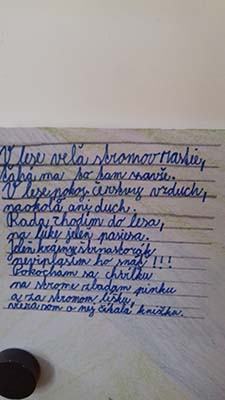 V lese veľa stromov rastie,
ťahá ma to tam
V lese pokoj, čerstvý vzduch,
naokolo ani duch.
Rada chodím do lesa,
na lúke jeleň pasie sa.
Jeleň krásny štrnástorák,
nevyplaším ho snáď!!!
Pokochám sa chvíľku
na strome zbadám pinku
a za stromom líšku,
včera som o nej čítala knižku.